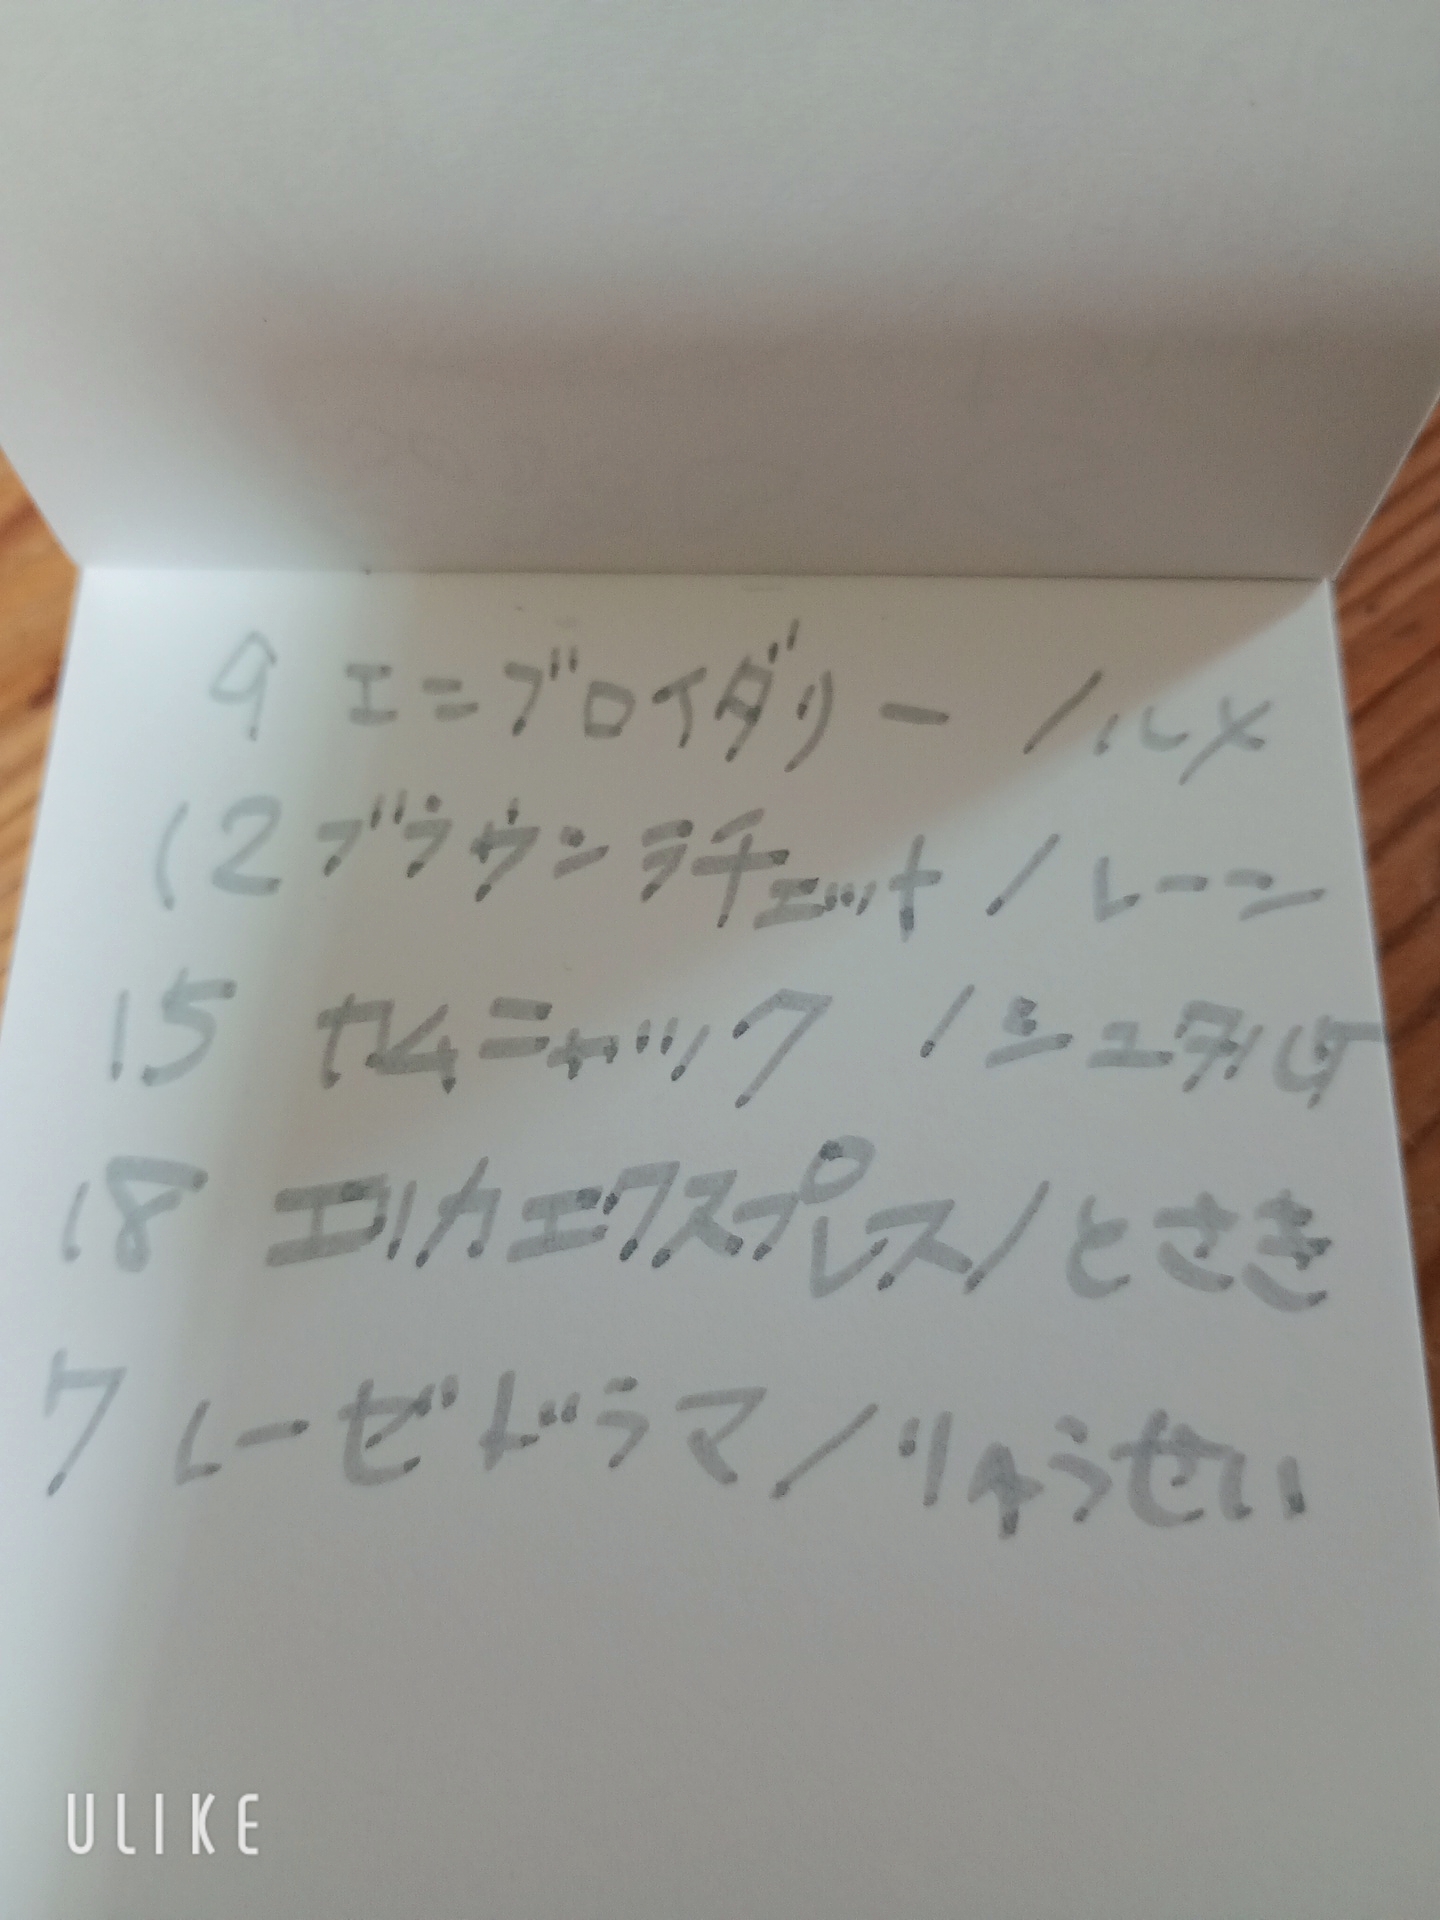 9 エニブロイダリー/ルメ
12 ブラウンラチェット/レーン
15 カムニャック/シュタルケ
18 エリカエクスプレス/とさき
7 レーゼドラマ/りゅうせい
ULIKE